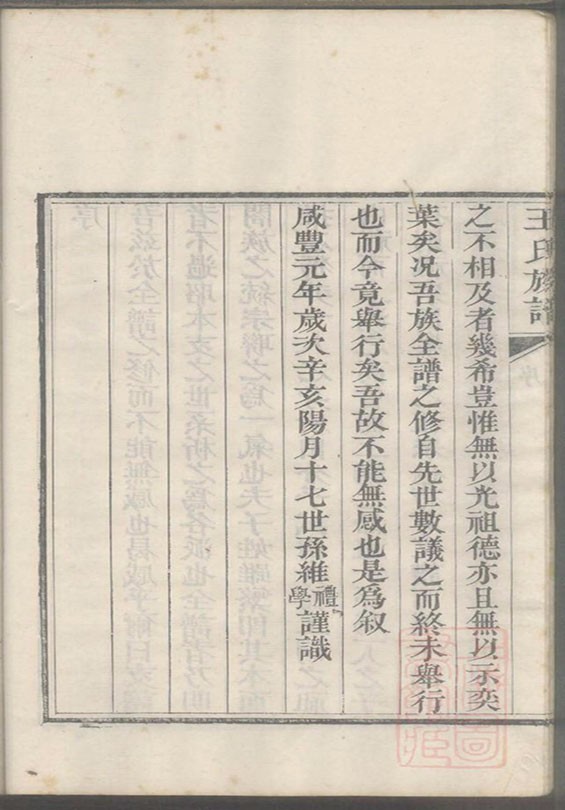 王氏族譜
序
之不相及者幾希豈惟無以光祖德亦且無以示奕
葉矣况吾族全譜之修自先世數議之而終未舉行
也而今竟舉行矣吾故不能無感也是為叙
咸豐元年歲次辛亥陽月十七世孫維禮學謹識